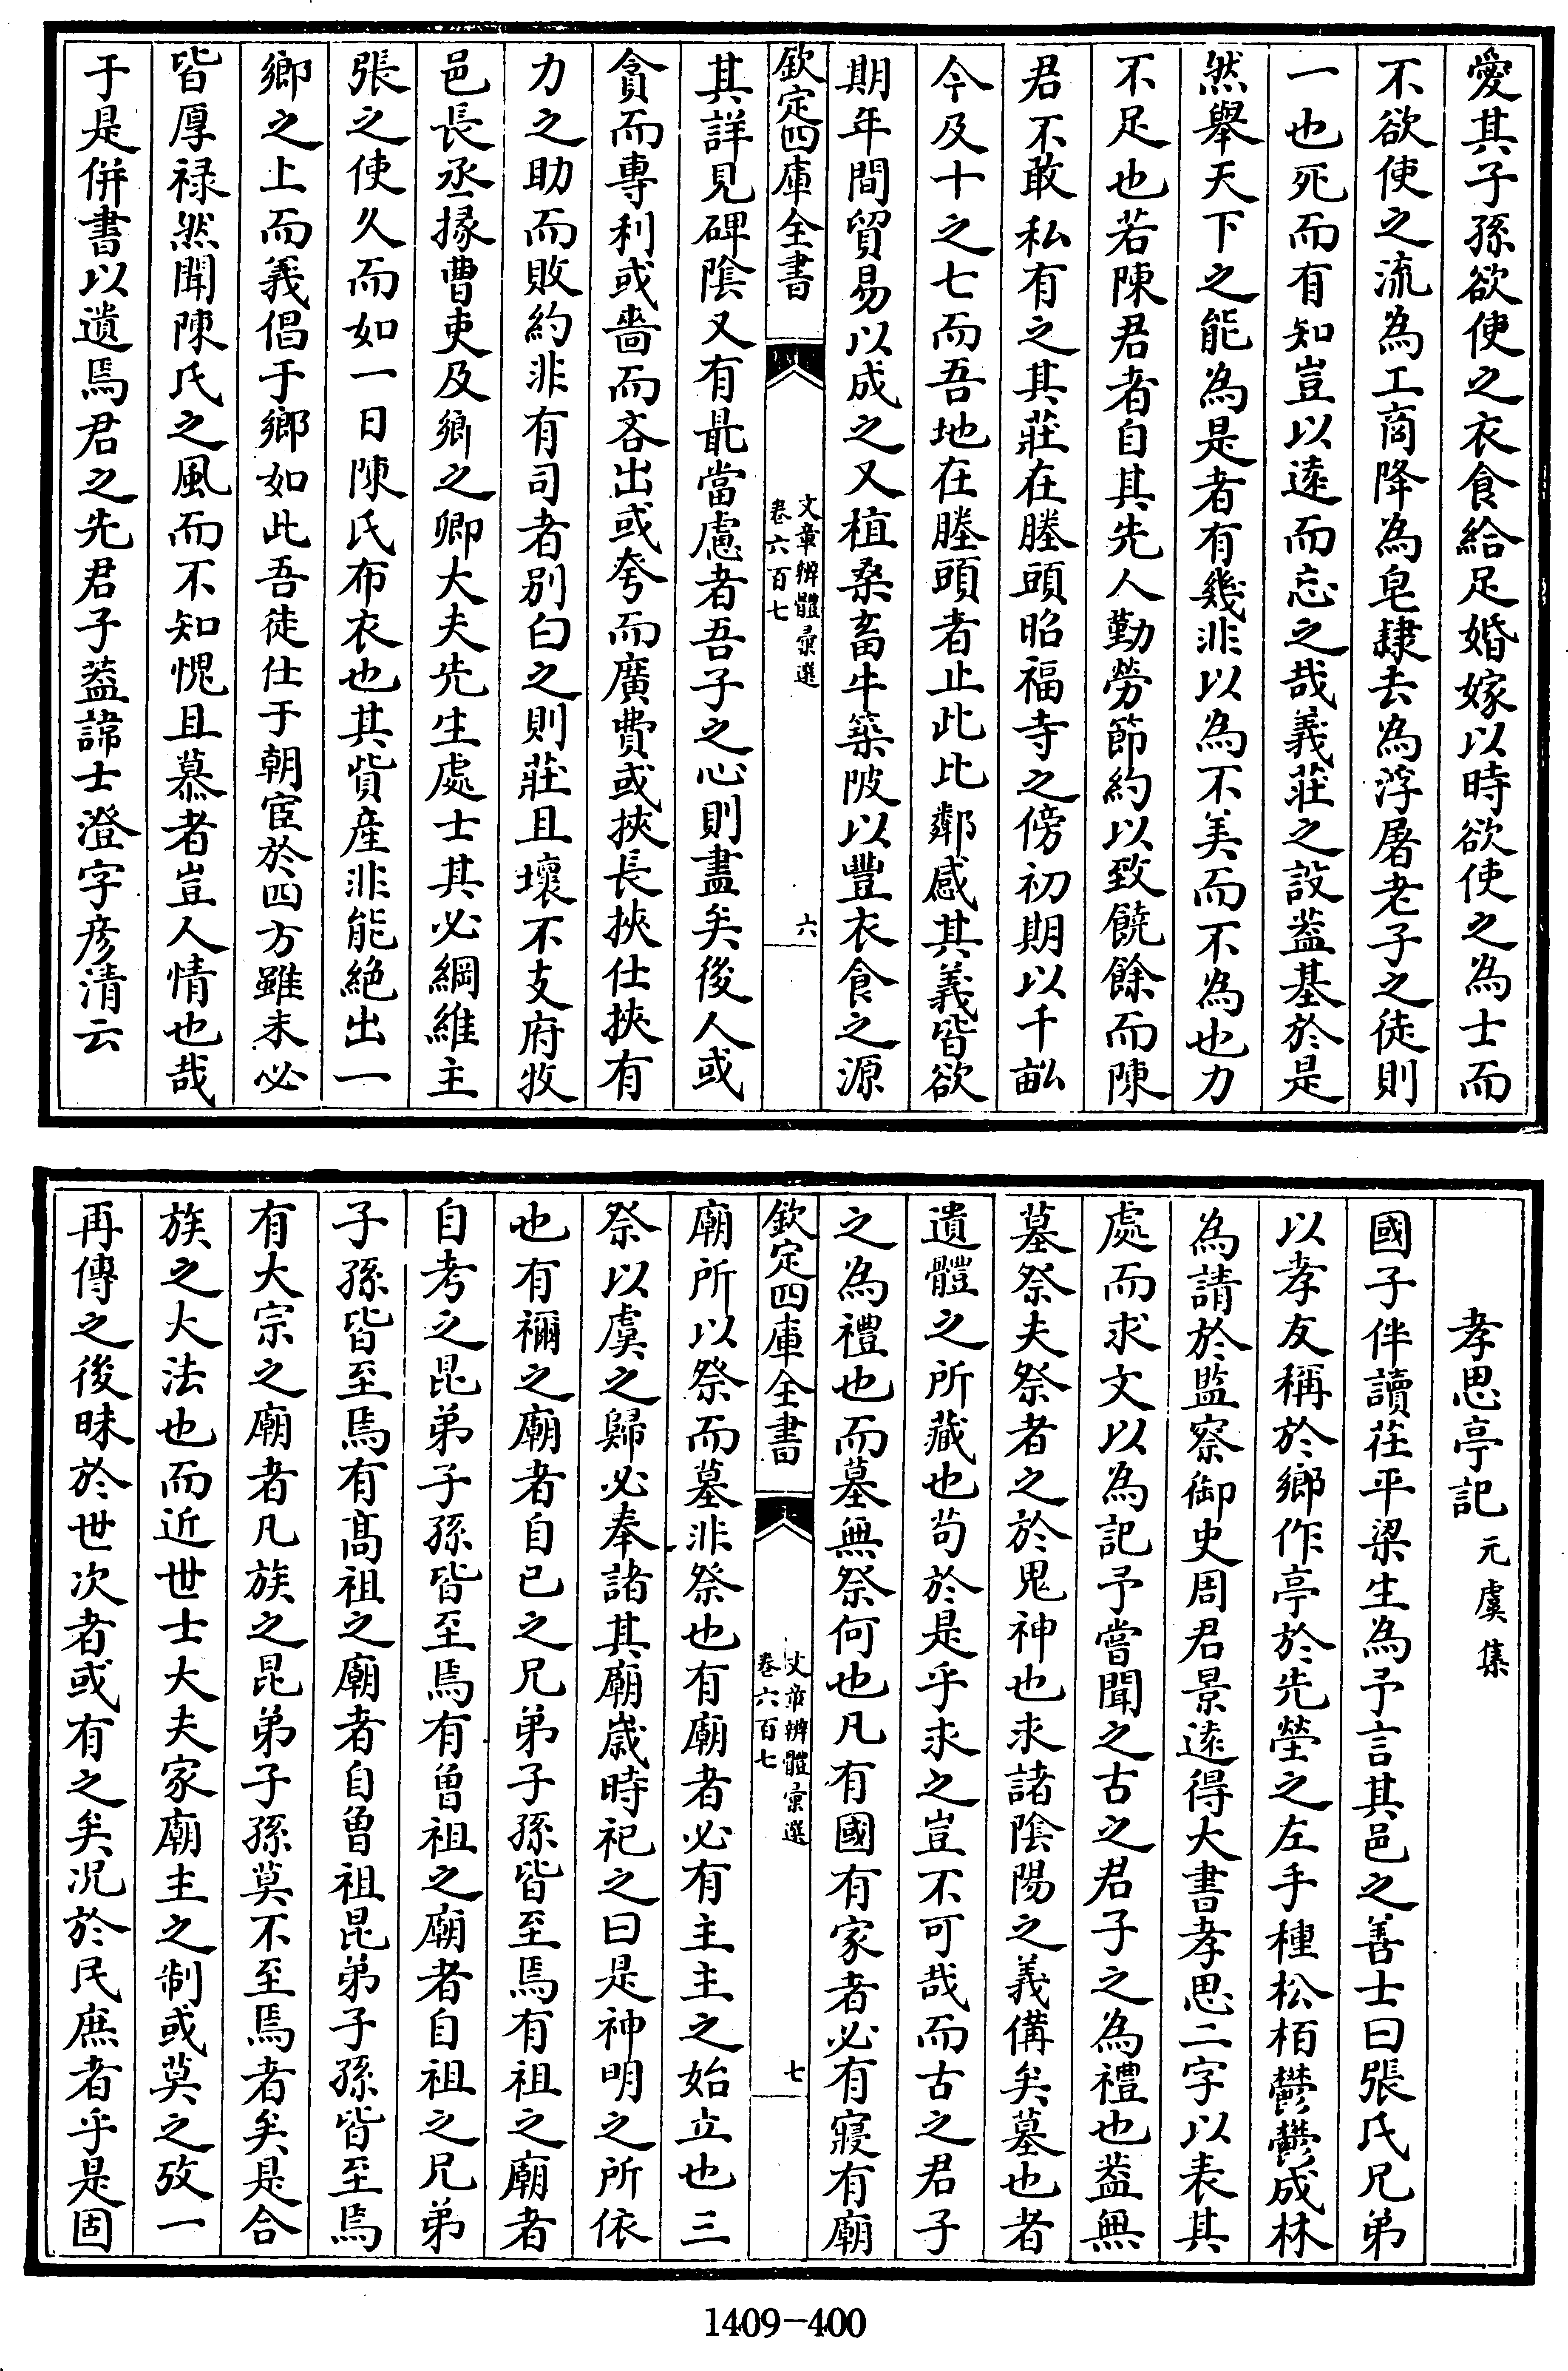 愛其子孫欲使之衣食給足婚嫁以時欲使之為士而
不欲使之流為工商降為皂隸去為浮屠老子之徒則
一也死而有知豈以遠而忘之哉義莊之設葢基於是
然舉天下之能為是者有幾非以為不美而不為也力
不足也若陳君者自其先人勤勞節約以致饒餘而陳
君不敢私有之其莊在塍頭昭福寺之傍初期以千畝
今及十之七而吾地在塍頭者止此比鄰感其義皆欲
期年間貿易以成之又植桑畜牛築陂以豐衣食之源
欽定四庫全書
文章辨體彚選
卷六百七
六
其詳見碑隂又有最當慮者吾子之心則盡矣後人或
貪而專利或嗇而吝出或夸而廣費或挾長挾仕挾有
力之助而敗約非有司者別白之則莊且壞不支府牧
邑長丞掾曹吏及鄉之卿大夫先生處士其必綱維主
張之使久而如一日陳氏布衣也其貲産非能絶出一
鄉之上而義倡于鄉如此吾徒仕于朝宦於四方雖未必
皆厚禄然聞陳氏之風而不知愧且慕者豈人情也哉
于是併書以遺焉君之先君子葢諱士澄字彦清云
孝思亭記 元 虞集
國子伴讀茌平梁生為予言其邑之善士曰張氏兄弟
以孝友稱於鄉作亭於先塋之左手種松栢鬱鬱成林
為請於監察御史周君景遠得大書孝思二字以表其
處而求文以為記予嘗聞之古之君子之為禮也葢無
墓祭夫祭者之於鬼神也求諸隂陽之義備矣墓也者
遺體之所藏也茍於是乎求之豈不可哉而古之君子
之為禮也而墓無祭何也凡有國有家者必有寢有廟
欽定四庫全書
文章辨體彚選
卷六百七
七
廟所以祭而墓非祭也有廟者必有主主之始立也三
祭以虞之歸必奉諸其廟嵗時祀之曰是神明之所依
也有禰之廟者自已之兄弟子孫皆至焉有祖之廟者
自考之昆弟子孫皆至焉有曾祖之廟者自祖之兄弟
子孫皆至焉有髙祖之廟者自曾祖昆弟子孫皆至焉
有大宗之廟者凡族之昆弟子孫莫不至焉者矣是合
族之大法也而近世士大夫家廟主之制或莫之攷一
再傳之後昧於世次者或有之矣况於民庶者乎是固
1409-400